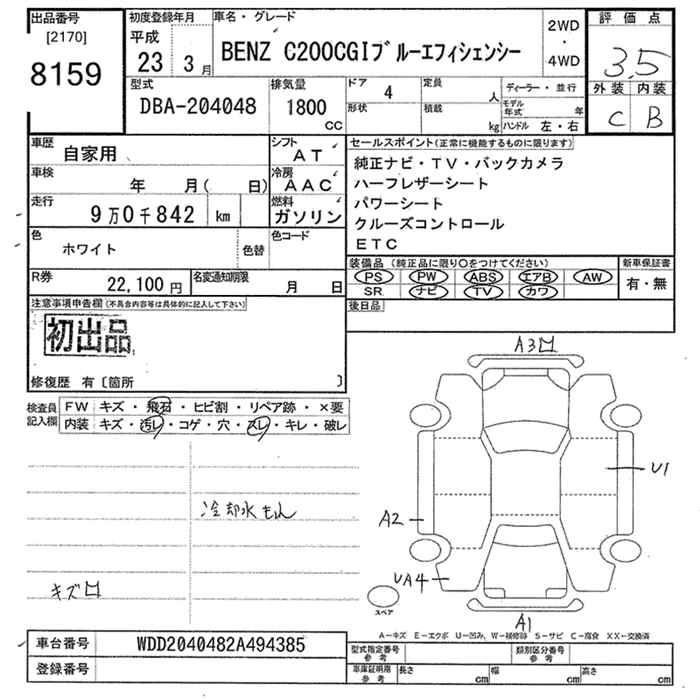 出品番号
[2170]
8159
初度登録年月
平成
23 3月
車名・グレード
BENZ C200CGIブルーエフィシェンシー
2WD
・
4WD
評価点
3.5
外装 内装
C B
型式
DBA-204048
排気量
1800
CC
ドア 4
定員 人
形状
積載 kg
ディーラー・並行
モデル年式 年
ハンドル 左・右
車歴 自家用
シフト AT
車検 年 月( 日)
冷房 AAC
走行 9万0千842 km
燃料 ガソリン
色 ホワイト
色替
色コード
R券 22,100円
名変通知期限 月 日
セールスポイント(正常に機能するものに限ります)
純正ナビ・TV・バックカメラ
ハーフレザーシート
パワーシート
クルーズコントロール
ETC
装備品 (純正品に限り○をつけてください)
PS PW ABS エアB AW
SR ナビ TV カワ
新車保証書
有・無
後日品
注意事項申告欄(不具合内容等は具体的に記入して下さい)
初出品
修復歴 有〔箇所 〕
検査員記入欄
FW キズ・飛石・ヒビ割・リペア跡・×要
内装 キズ・汚レ・コゲ・穴・スレ・キレ・破レ
冷却水もれ
キズロ
A3
U1
A2
UA4
A1
スペア
A-キズ E-エクボ U-凹み、W-補修跡 S-サビ C-腐食 XX-交換済
車台番号 WDD2040482A494385
登録番号
型式指定番号 参考
類別区分番号 参考
車庫証明用 参考
長さ cm
幅 cm
高さ cm